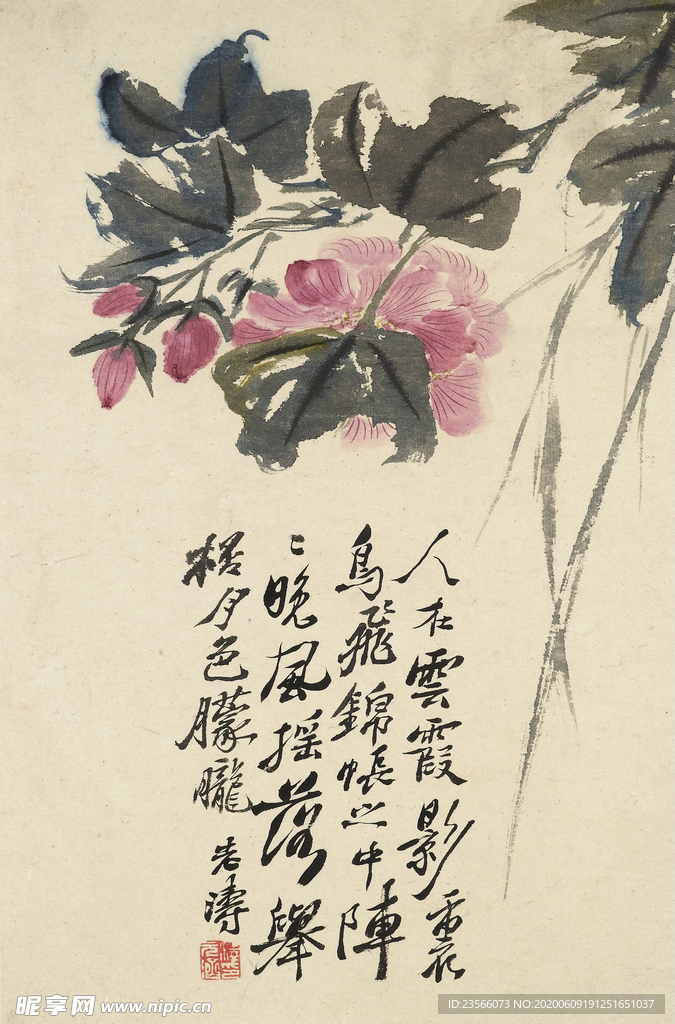 人在雲霞影裏
鳥飛錦帳之中陣
〻晚風摇落舉
桮夕色朦朧 老濤
昵享网 www.nipic.cn
ID:23566073 NO:20200609191251651037